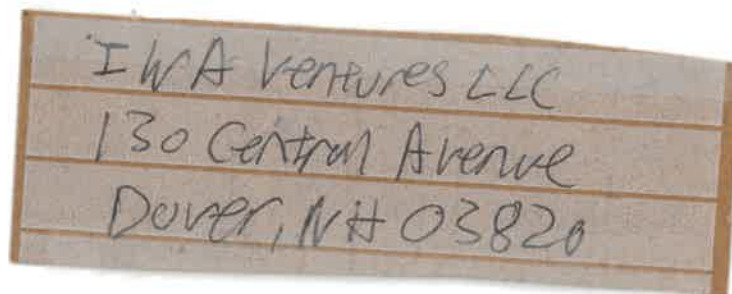 IWA Ventures LLC
130 Central Avenue
Dover, NH 03820